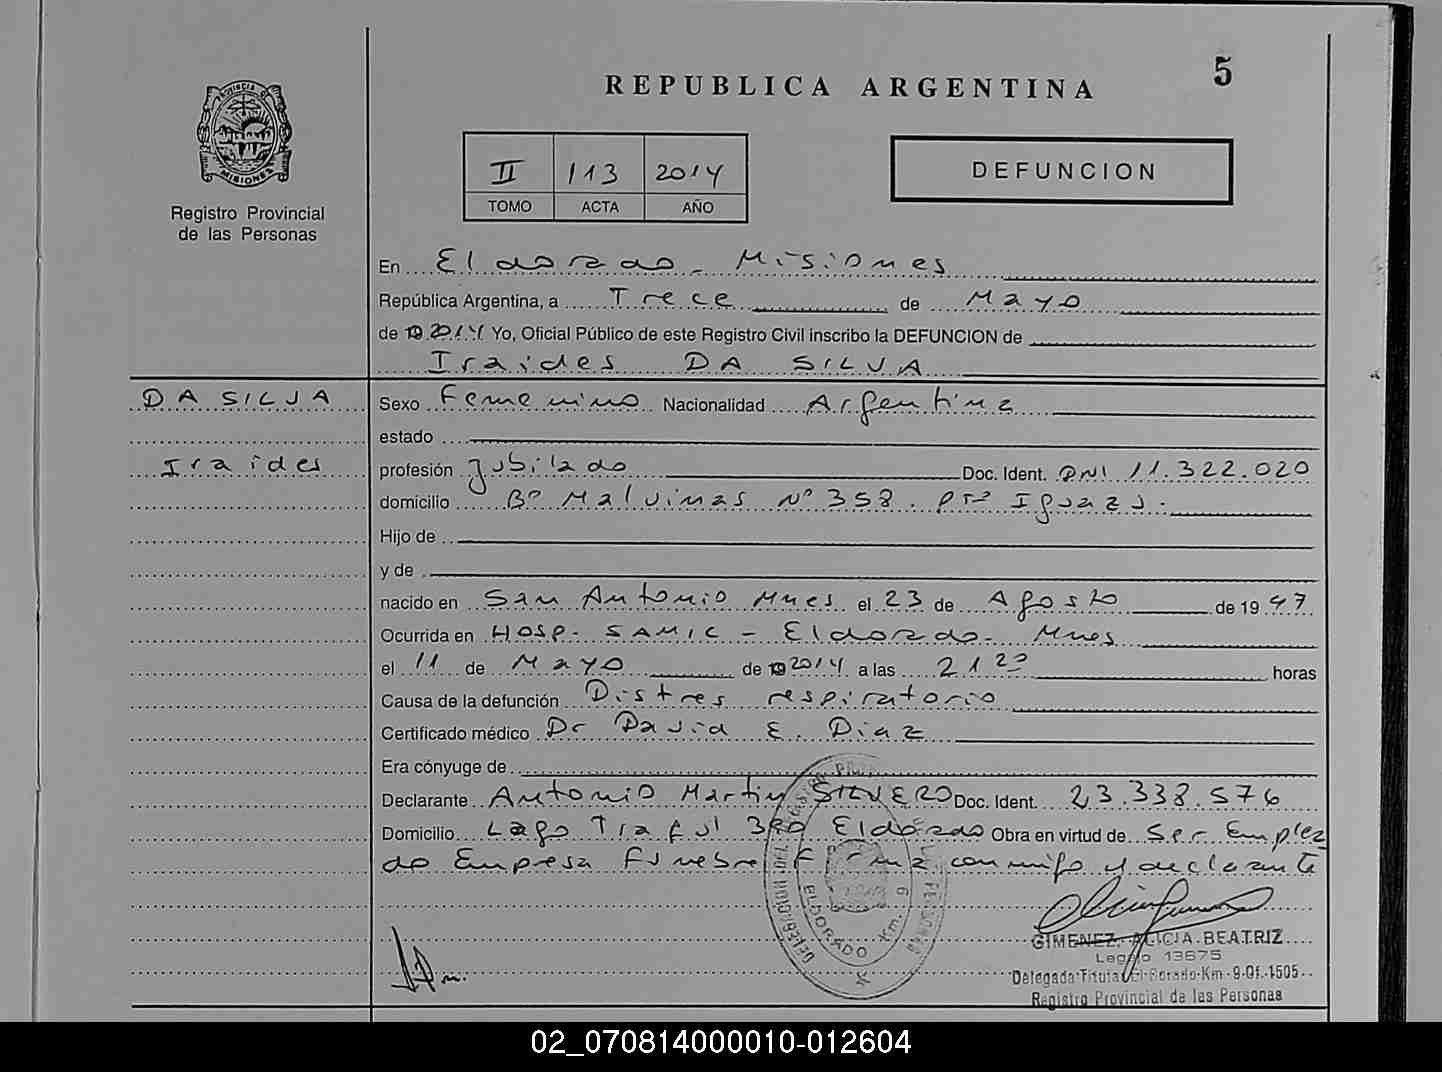 5
REPUBLICA ARGENTINA
PROVINCIA DE
MISIONES
Registro Provincial
de las Personas
II 113 2014
TOMO ACTA AÑO
DEFUNCION
En Eldorado - Misiones
República Argentina, a Trece de Mayo
de 2014 Yo, Oficial Público de este Registro Civil inscribo la DEFUNCION de
Iraides DA SILVA
DA SILVA
Iraides
Sexo Femenino Nacionalidad Argentina
estado
profesión Jubilado Doc. Ident. DNI 11.322.020
domicilio Bº Malvinas Nº 358. Pto Iguazú.
Hijo de
y de
nacido en San Antonio Mnes el 23 de Agosto de 1947
Ocurrida en Hosp. SAMIC - Eldorado - Mnes
el 11 de Mayo de 2014 a las 21 20 horas
Causa de la defunción Distres respiratorio
Certificado médico Dr David E. Diaz
Era cónyuge de
Declarante Antonio Martin SILVERO Doc. Ident. 23.338.576
Domicilio Lago Traful 380 Eldorado Obra en virtud de Ser Emplea
do Empresa Funebre Firma conmigo y declarante
ELDORADO Km. 9
GIMENEZ, ALICIA BEATRIZ
Legajo 13675
Delegada Titular Eldorado Km. 9 Of. 1505
Registro Provincial de las Personas
02_070814000010-012604